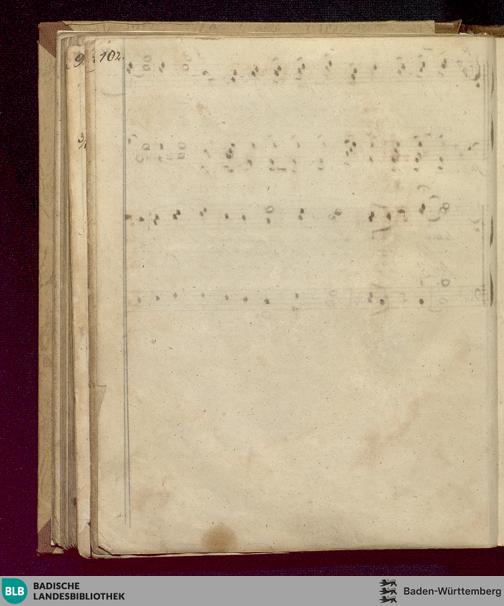 102.
BLB
BADISCHE
LANDESBIBLIOTHEK
Baden-Württemberg